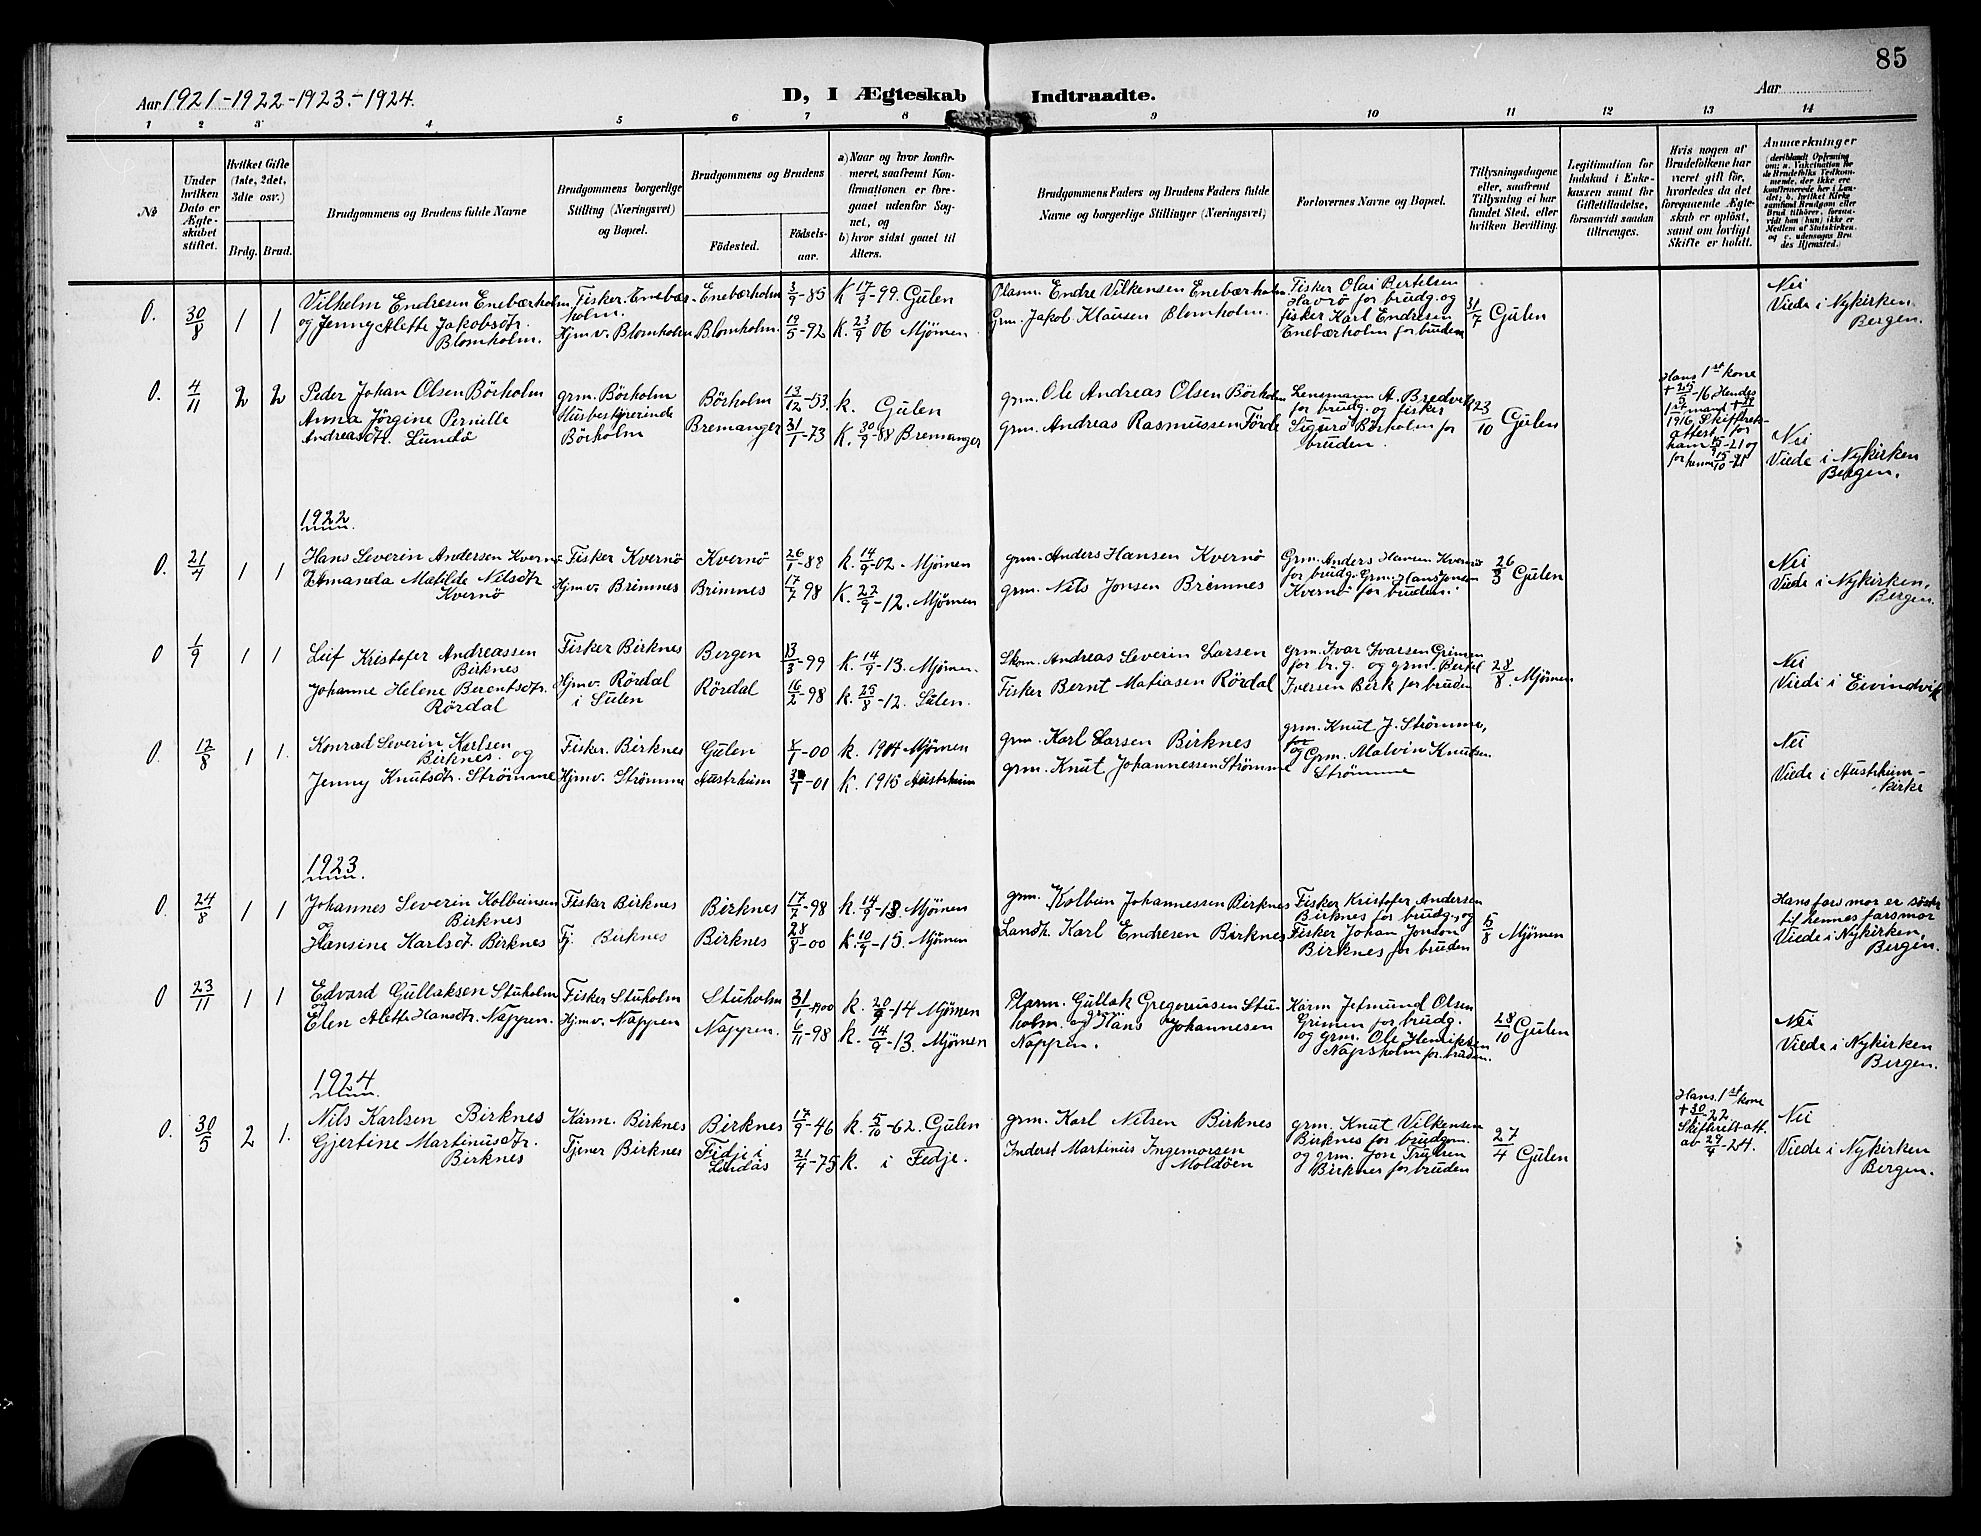 85
Aar 1921-1922-1923.-1924.
D, I Ægteskab Indtraadte.
Aar
1 2 3 4 5 6 7 8 9 10 11 12 13 14
№
Under hvilken Dato er Ægteskabet stiftet.
Hvilket Gifte (1ste, 2det, 3dte osv.)
Brdg. Brud.
Brudgommens og Brudens fulde Navne
Brudgommens borgerlige Stilling (Næringsvei) og Bopæl.
Brudgommens og Brudens
Födested. Födsels-aar.
a) Naar og hvor konfirmeret, saafremt Konfirmationen er foregaaet udenfor Sognet, og
b) hvor sidst gaaet til Alters.
Brudgommens Faders og Brudens Faders fulde Navne og borgerlige Stillinger (Næringsvei)
Forlovernes Navne og Bopæl.
Tillysningsdagene eller, saafremt Tillysning ei har fundet Sted, efter hvilken Bevilling.
Legitimation for Indskud i Enkekassen samt for Giftetilladelse, forsaavidt saadan tiltrænges.
Hvis nogen af Brudefolkene har været gift för, hvorledes da det foregaaende Ægteskab er oplöst, samt om lovligt Skifte er holdt.
Anmærkninger
0. 30/8 1 1
Vilhelm Endresen Enebærholm
og Jenny Alette Jakobsdtr.
Blomholm.
Fisker. Enebærholm.
Hjmv. Blomholm
Enebærholm
Blomholm.
3/9-85
19/5-92
K 17/9-99 Gulen
K. 23/9 06 Mjömen
Endre Vilkensen Enebærholm
Grm. Jakob Klausen Blomholm.
Fisker Olai Bertelsen
Havrö for brudg. og
fisker Karl Endresen
Enebærholm for bruden
31/7 Gulen
Nei
Viede i Nykirken
Bergen.
0. 4/11 2 2
Peder Johan Olsen Börholm
Anna Jörgine Pernille
Andreasdtr. Lundö
grm. Börholm
Husbestyrerinde
Börholm
Börholm
Bremanger
13/12-53.
31/1-73
k. Gulen
K. 30/9-88 Bremanger
grm. Ole Andreas Olsen Börholm
grm. Andreas Rasmussen Förde
Lensmann A. Bredvik
for brudg. og fisker
Sigurd Börholm for
bruden.
23/10 Gulen
Hans 1st kone
+ 25/5-16 Hendes
1st mand +
1916, Skifterets-
attest for
ham -21 og
for henne 15/10-21
Nei
Viede i Nykirken
Bergen.
1922
0. 21/4 1 1
Hans Severin Andersen Kvernö
og Amanda Matilde Nilsdtr
Kvernö
Fisker Kvernö
Hjmv. Brimnes
Kvernö
Brimnes
26/1-88
17/7 98
k. 14/9-02. Mjömen
K. 22/9-12. Mjömen
grm. Anders Hansen Kvernö
grm. Nils Jonsen Brimnes
Grm. Anders Hansen Kvernö
for brudg. Grm. Hans Jonsen
Kvernö for bruden.
26/3 Gulen
Nei
Viede i Nykirken,
Bergen.
0 1/9 1 1
Leif Kristofer Andreassen
Birknes
Johanne Helene Berentsdtr.
Rördal
Fisker Birknes
Hjmv. Rördal
i Sulen
Bergen
Rördal
13/3-99
16/2-98
K. 14/9-13. Mjömen.
k. 25/8-12. Sulen.
Skom. Andreas Severin Larsen
Fisker Bernt Matiasen Rördal
grm. Ivar Ivarsen Grimen
for br.g. og grm. Bertel
Iversen Birk for bruden
28/8. Mjömen
Nei
Viede i Eivindvik
0. 12/8 1 1.
Konrad Severin Karlsen
Birknes. og
Jenny Knutsdtr. Strömme
Fisker. Birknes
Hjmv. Strömme
Gulen
Austrheim
-00
-01
k. 1914 Mjömen
K. 1915 Austrheim
grm. Karl Larsen Birknes
grm. Knut Johannessen Strömme
grm. Knut J. Strömme,
for
og Grm. Malvin Knutsen
Strömme
Nei
Viede i Austrheim-
Kirke
1923
0. 24/8 1 1
Johannes Severin Kolbeinsen
Birknes
og
Hansine Karlsdt. Birknes
Fisker Birknes
Tj. Birknes
Birknes
Birknes
17/7-98
28/8-00
k. 14/9-13. Mjömen
K. 10/9-15. Mjömen
grm. Kolbein Johannessen Birknes
Landh. Karl Endresen Birknes
Fisker Kristofer Andersen
Birknes for brudg., og
Fisker Johan Jonson
Birknes for bruden
5/8 Mjömen
Hans far mor er söster
til hennes farsmor
Viede i Nykirken,
Bergen.
0 23/11 1 1
Edvard Gullaksen Stuholm
og
Elen Alette Hansdtr. Nappen.
Fisker Stuholm
Hjmv. Nappen
Stuholm
Nappen.
31/1-1900
6/11-98
k. 20/9-14 Mjömen
k. 14/9-13. Mjömen
Plasm. Gullak Gregoriussen Stu-
holm. og grm. Hans Johannesen
Nappen.
Kårm Jetmund Olsen
Grimen for brudg.
og grm. Ole Henriksen
Napsholm for bruden.
28/10 Gulen
Nei
Viede i Nykirken
Bergen.
1924
0. 30/5 2 1.
Nils Karlsen Birknes
Gjertine Martinusdtr.
Birknes
Kårm. Birknes
Tjener Birknes
Birknes
Fedje i
Lindås
17/9-46
21/4-75
k. 5/10-62. Gulen
k. i Fedje.
grm. Karl Nilsen Birknes
Inderst Martinus Ingemorsen
Moldöen
grm. Knut Vilkensen
Birknes for brudgom.
og grm. Jon
Birknes for bruden
27/4 Gulen
Hans. 1st kone
+ 30/ -22.
Skifterett-att.
av 29/4-24.
Nei
Viede i Nykirken
Bergen.